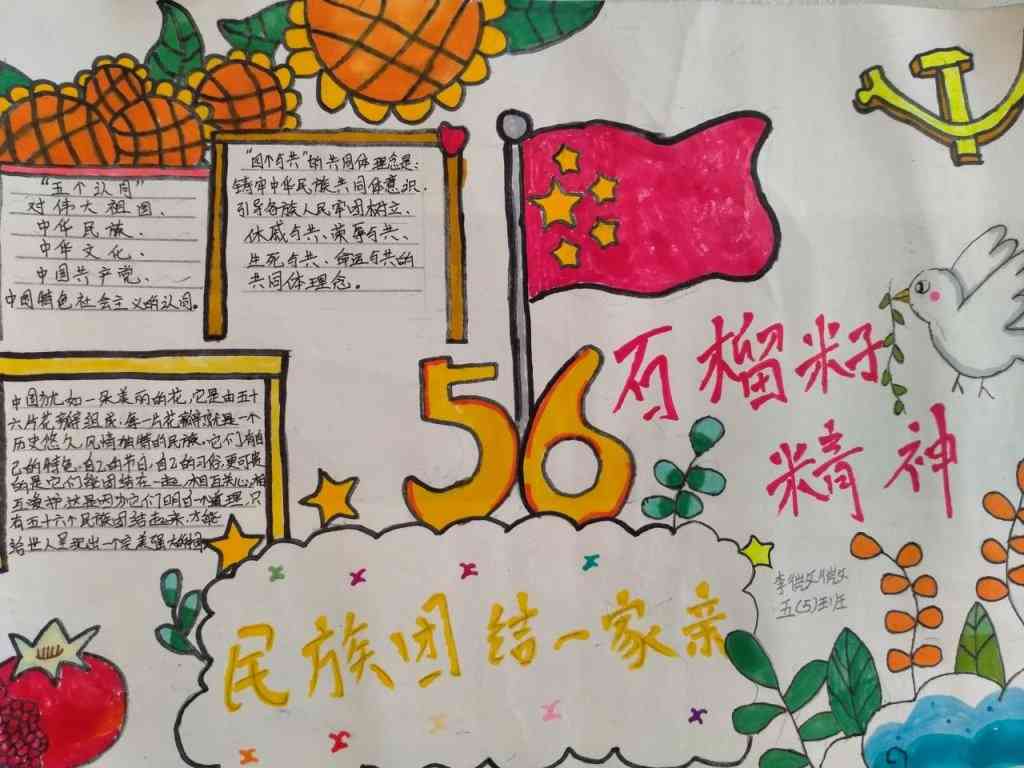 "五个认同"
对伟大祖国、
中华民族、
中华文化、
中国共产党、
中国特色社会主义的认同。
"四个与共"的共同体理念是:
铸牢中华民族共同体意识,
引导各族人民牢固树立、
休戚与共、荣辱与共、
生死与共、命运与共的
共同体理念。
中国犹如一朵美丽的花,它是由五十
六片花瓣组成,每一片花瓣就是一个
历史悠久,风情独特的民族,它们有自
己的特色,自己的节日,自己的习俗,更可贵
的是它们能团结在一起,相互关心,相
互爱护,这是因为它们明白一个道理,只
有五十六个民族团结起来,才能
给世人呈现出一个完美强大的
56
石榴米子
精神
李
五(5)班
民族团结一家亲